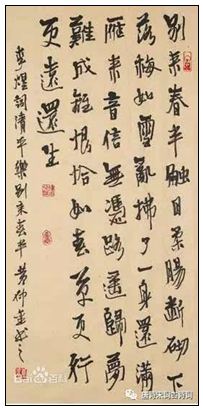 别来春半触目柔肠断砌下
落梅如雪乱拂了一身还满
雁来音信无凭路遥归梦
难成离恨恰如春草更行
更远还生
李煜词清平乐别来春半